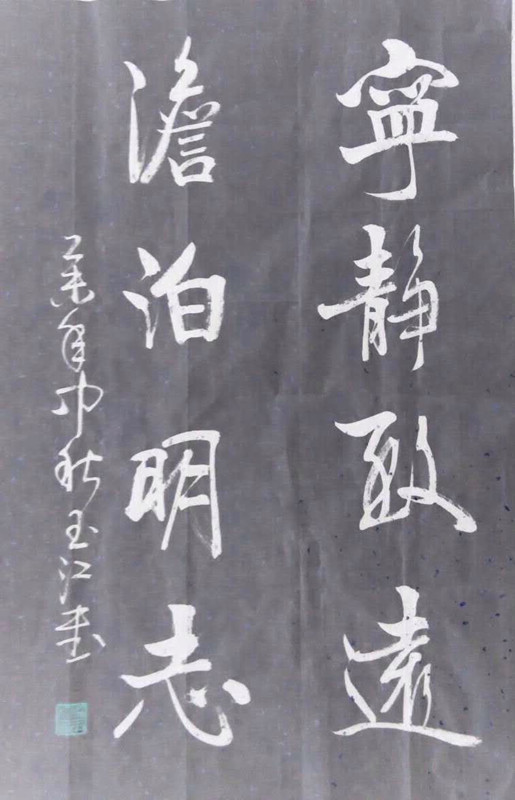 寧靜致遠
澹泊明志
年中秋玉江書